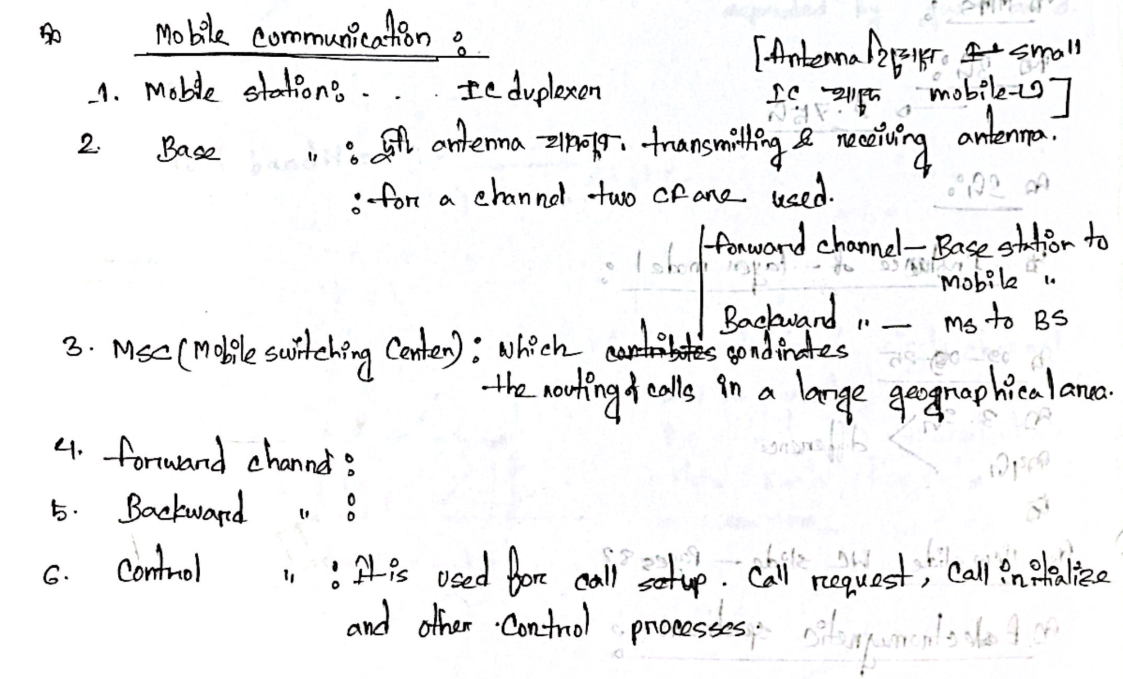 Mobile Communication :
1. Mobile station : . . . IC duplexer [Antenna হিসেবে small IC থাকে mobile-এ]
2. Base " : দুটি antenna থাকে. transmitting & receiving antenna.
: for a channel two CF are used.
forward channel — Base station to Mobile "
Backward " — MS to BS
3. MSC (Mobile switching Center) : which condinates
the routing of calls in a large geographical area.
4. forward channel :
5. Backward " :
6. Control " : It is used for call setup. Call request, Call initialize
and other control processes.